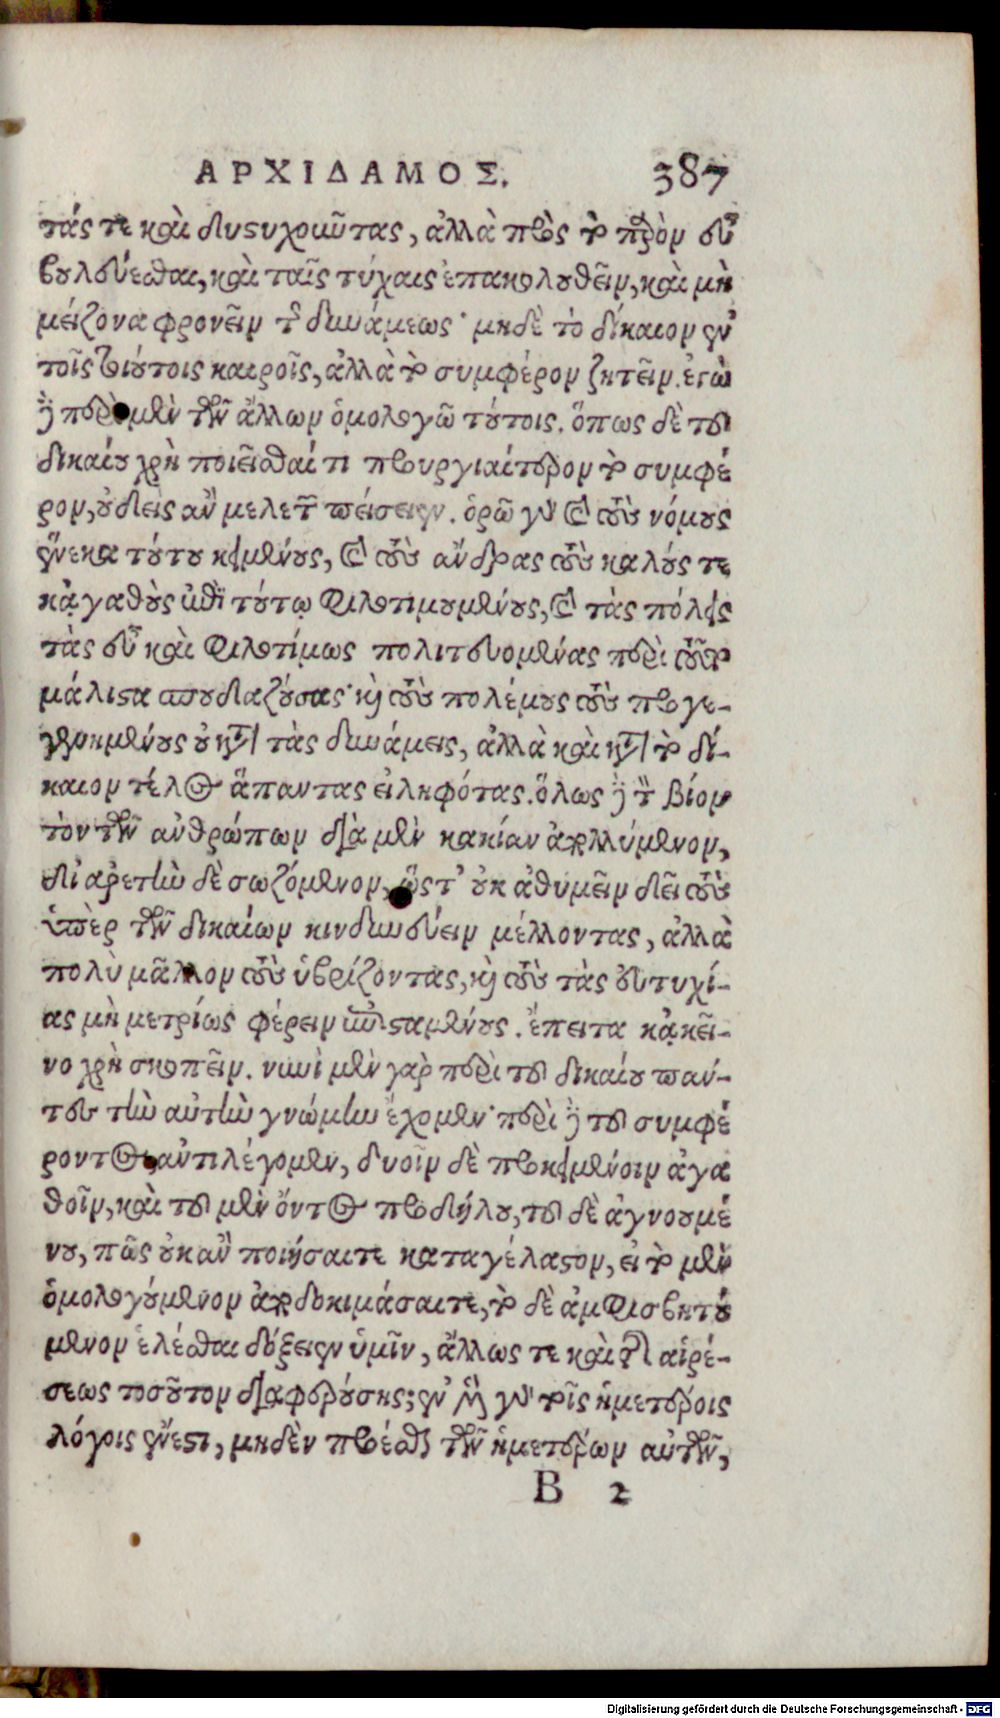 ΑΡΧΙΔΑΜΟΣ. 387
τάς τε καὶ δυστυχοῦντας, ἀλλὰ πρὸς τὸ παρὸν συμ
βουλεύεσθαι, καὶ ταῖς τύχαις ἐπακολουθεῖν, καὶ μὴ
μείζονα φρονεῖν τῆς δυνάμεως· μηδὲ τὸ δίκαιον ἐν
τοῖς τοιούτοις καιροῖς, ἀλλὰ τὸ συμφέρον ζητεῖν. ἐγὼ
δὲ περὶ μὲν τῶν ἄλλων ὁμολογῶ τούτοις. ὅπως δὲ τοῦ
δικαίου χρὴ ποιεῖσθαί τι προυργιαίτερον τὸ συμφέ
ρον, οὐδεὶς ἄν με λέγων πείσειεν. ὁρῶ γὰρ καὶ τοὺς νόμους
ἕνεκα τούτου κειμένους, καὶ τοὺς ἄνδρας τοὺς καλούς τε
κἀγαθοὺς ἐπὶ τούτῳ φιλοτιμουμένους, καὶ τὰς πόλεις
τὰς εὖ καὶ φιλοτίμως πολιτευομένας περὶ τοῦτο
μάλιστα σπουδαζούσας· καὶ τοὺς πολέμους τοὺς προγε-
γενημένους οὐ κατὰ τὰς δυνάμεις, ἀλλὰ καὶ κατὰ τὸ δί-
καιον τέλος ἅπαντας εἰληφότας. ὅλως δὲ τὸν βίον
τὸν τῶν ἀνθρώπων διὰ μὲν κακίαν ἀπολλύμενον,
δι' ἀρετὴν δὲ σωζόμενον, ὥστ' οὐκ ἀθυμεῖν δεῖ τοὺς
ὑπὲρ τῶν δικαίων κινδυνεύειν μέλλοντας, ἀλλὰ
πολὺ μᾶλλον τοὺς ὑβρίζοντας, καὶ τοὺς τὰς εὐτυχί-
ας μὴ μετρίως φέρειν ἐπισταμένους. ἔπειτα κἀκεῖ-
νο χρὴ σκοπεῖν. νυνὶ μὲν γὰρ περὶ τοῦ δικαίου πάν-
τες τὴν αὐτὴν γνώμην ἔχομεν· περὶ δὲ τοῦ συμφέ
ροντος ἀντιλέγομεν, δυοῖν δὲ προκειμένοιν ἀγα
θοῖν, καὶ τοῦ μὲν ὄντος προδήλου, τοῦ δὲ ἀγνοουμέ
νου, πῶς οὐκ ἂν ποιήσαιτε καταγέλαστον, εἰ τὸ μὲν
ὁμολογούμενον ἀποδοκιμάσαιτε, τὸ δὲ ἀμφισβητού
μενον ἑλέσθαι δόξειεν ὑμῖν, ἄλλως τε καὶ τῆς αἱρέ-
σεως τοσοῦτον διαφερούσης; ἐν μὲν γὰρ τοῖς ἡμετέροις
λόγοις ἔνεστι, μηδὲν προέσθαι τῶν ἡμετέρων αὐτῶν,
B 2
Digitalisierung gefördert durch die Deutsche Forschungsgemeinschaft - DFG